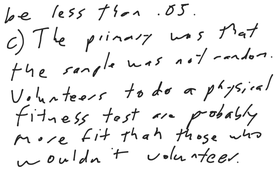 be less than .05.
c) The primary was that
the sample was not random.
Volunteers to do a physical
fitness test are probably
more fit than those who
wouldn't volunteer.